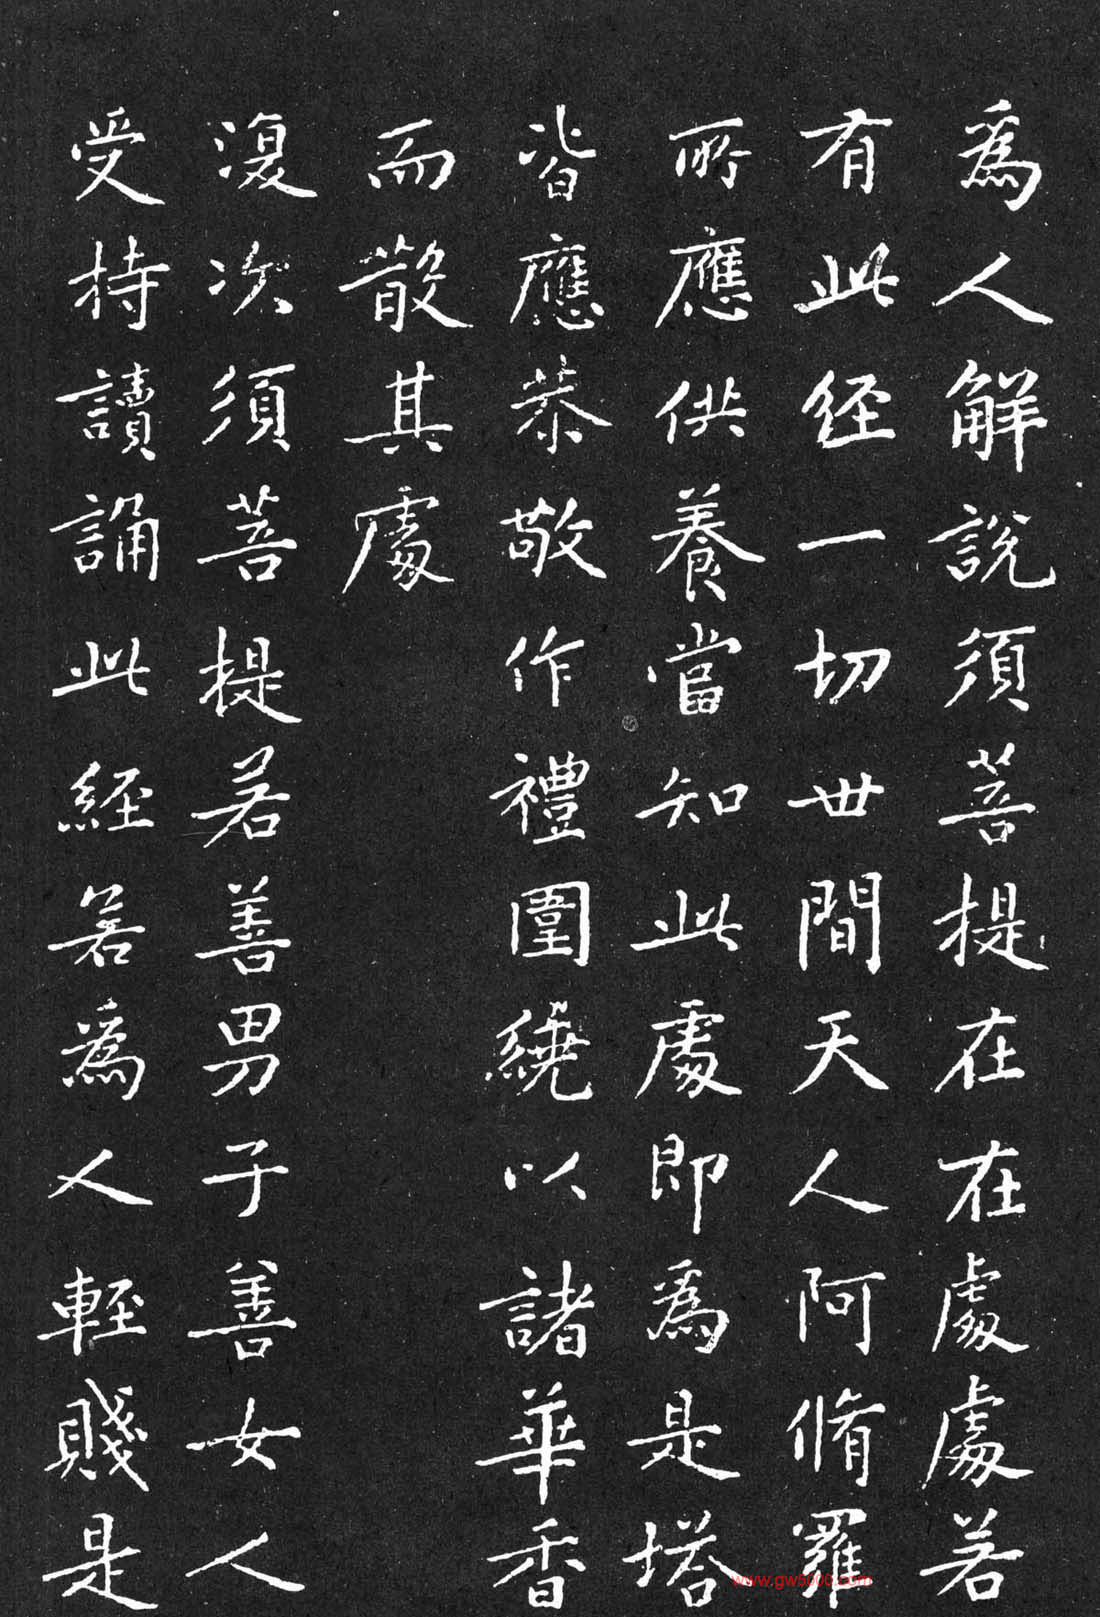 為人解說須菩提在在處處若
有此経一切世間天人阿脩羅
所應供養當知此處即為是塔
皆應恭敬作禮圍繞以諸華香
而散其處
復次須菩提若善男子善女人
受持讀誦此経若為人輊賤是
www.gw5000.com